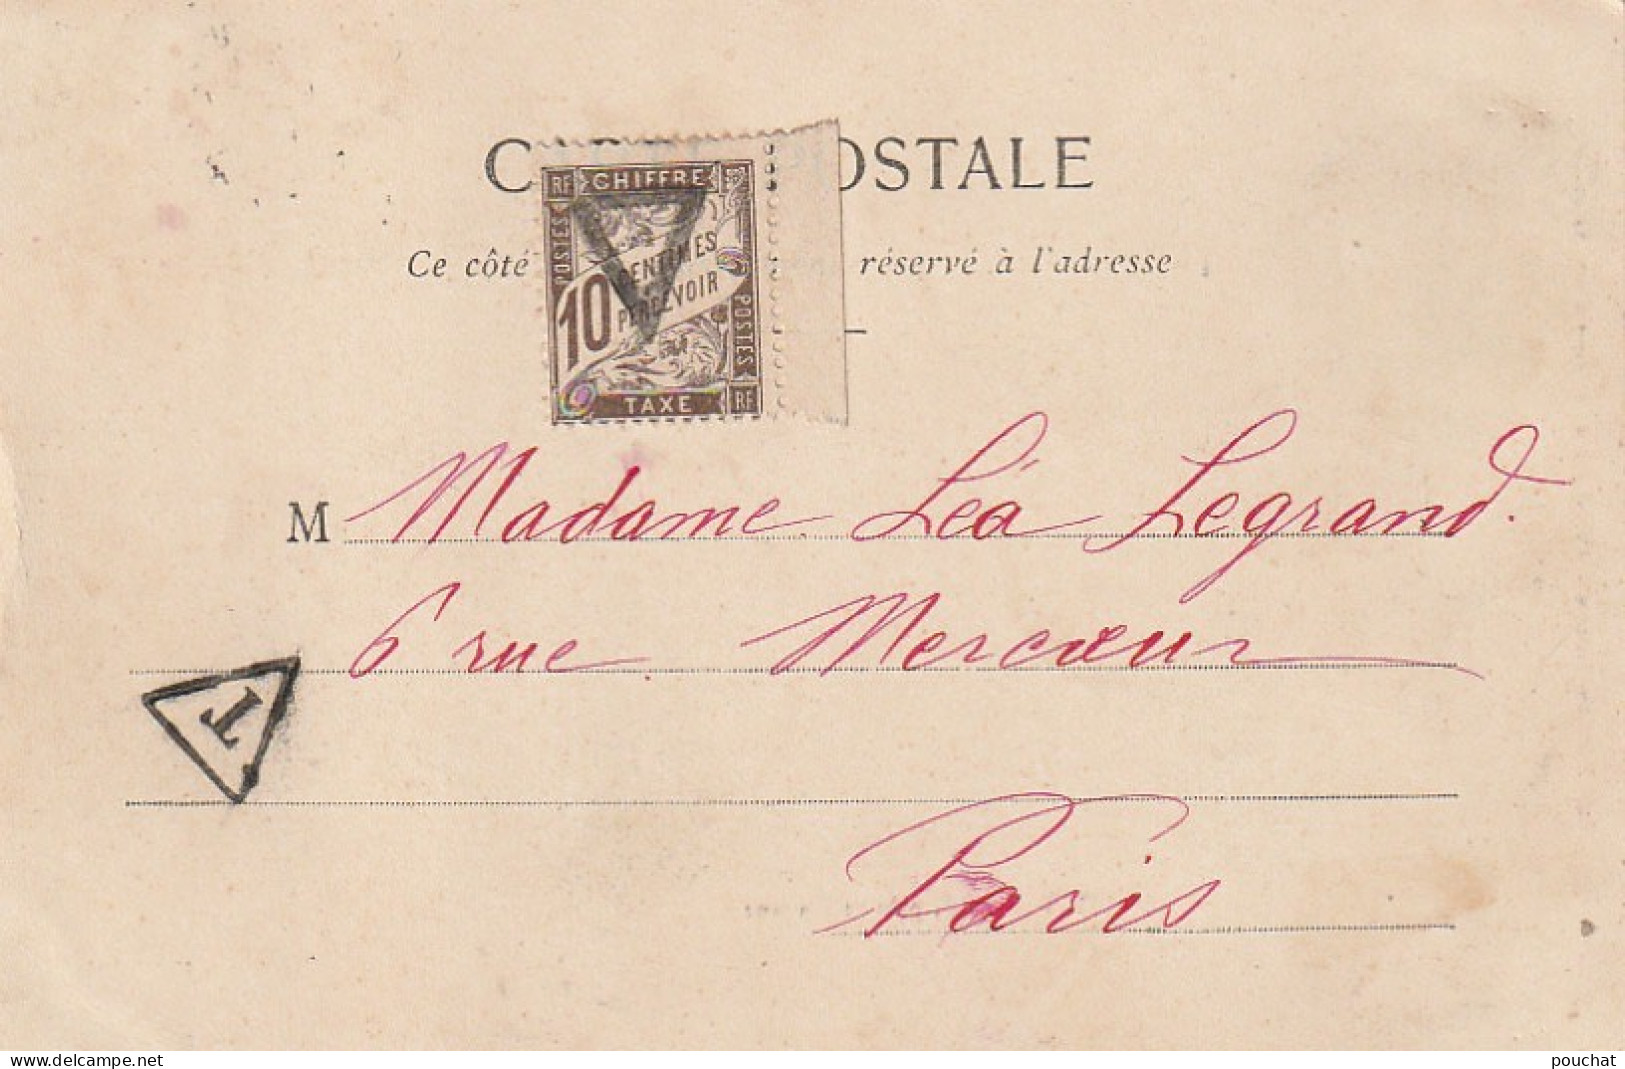 C OSTALE
RF CHIFFRE
POSTES
CENTIMES
10 PERCEVOIR
POSTES
TAXE RF
Ce côté réservé à l'adresse
M Madame Léa Legrand.
6 rue Mercœur
T
Paris
www.delcampe.net pouchat